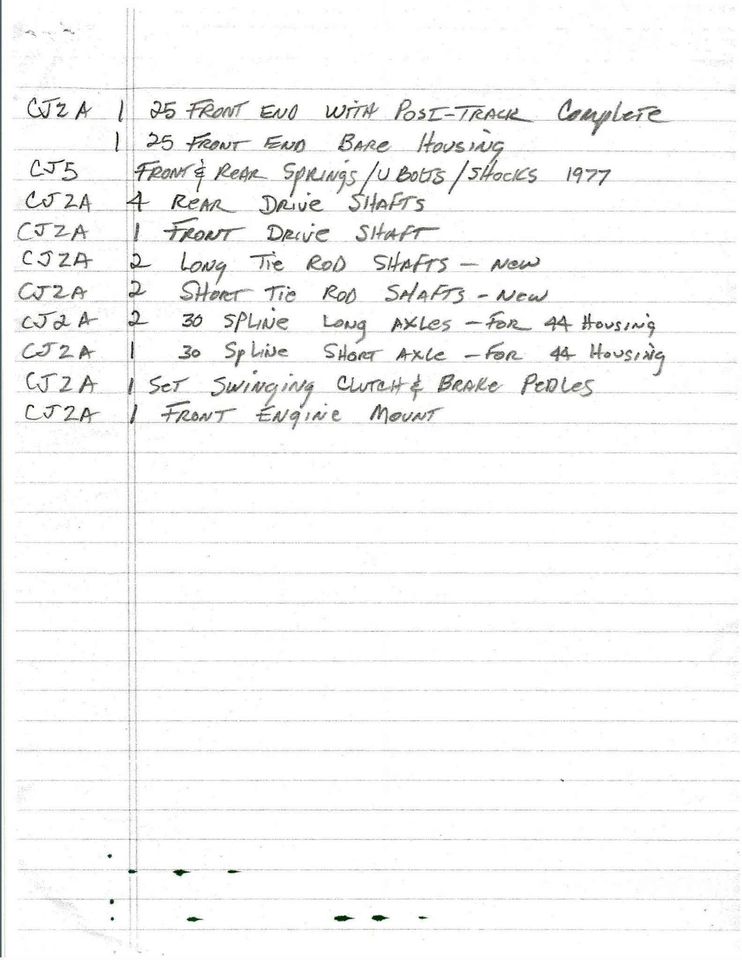 CJ2A 1 25 FRONT END WITH POSI-TRACK COMPLETE
1 25 FRONT END BARE HOUSING
CJ5 FRONT & REAR SPRINGS/U BOLTS/SHOCKS 1977
CJ2A 4 REAR DRIVE SHAFTS
CJ2A 1 FRONT DRIVE SHAFT
CJ2A 2 LONG TIE ROD SHAFTS - NEW
CJ2A 2 SHORT TIE ROD SHAFTS - NEW
CJ2A 2 30 SPLINE LONG AXLES - FOR 44 HOUSING
CJ2A 1 30 SPLINE SHORT AXLE - FOR 44 HOUSING
CJ2A 1 SET SWINGING CLUTCH & BRAKE PEDLES
CJ2A 1 FRONT ENGINE MOUNT